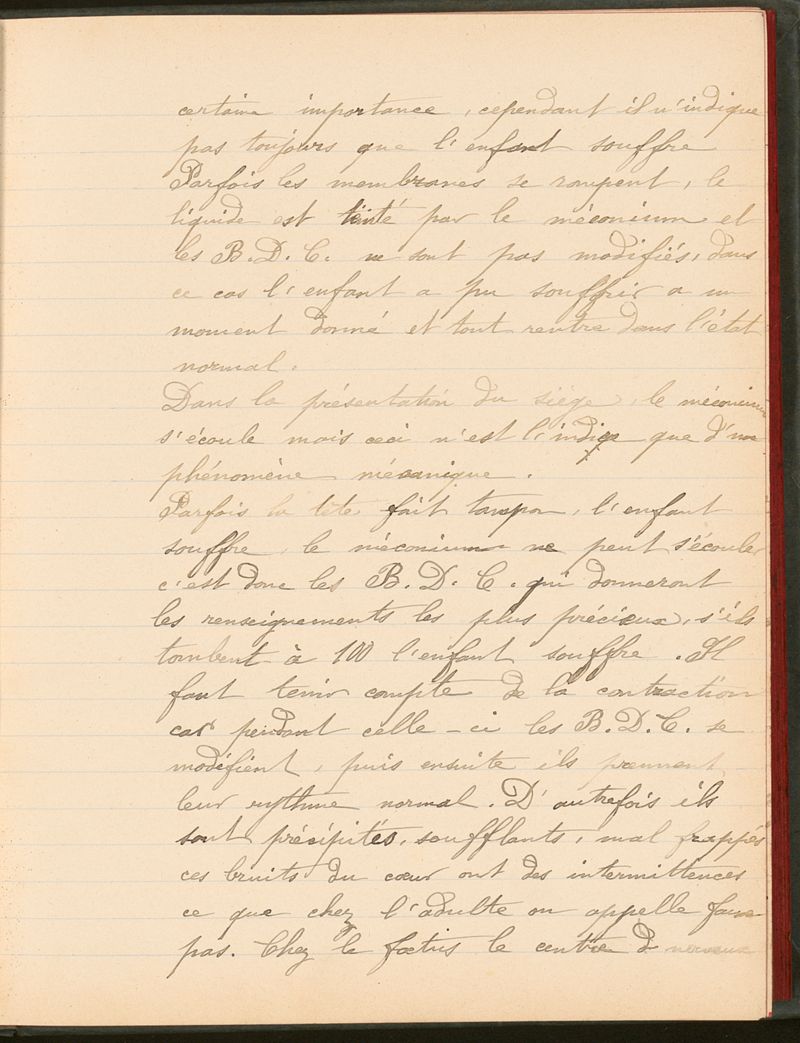 certaine importance, cependant il n'indique
pas toujours que l'enfant souffre
Parfois les membranes se rompent, le
liquide est teinté par le méconium et
les B.D.C. ne sont pas modifiés, dans
ce cas l'enfant a pu souffrir a un
moment donné et tout rentre dans l'état
normal.
Dans la présentation du siège, le méconium
s'écoule mais ceci n'est l'indice que d'un
phénomène mécanique.
Parfois la tête fait tampon, l'enfant
souffre, le méconium ne peut s'écouler
c'est donc les B.D.C. qui donneront
les renseignements les plus précieux, s'ils
tombent à 100 l'enfant souffre. Il
faut tenir compte de la contraction
car pendant celle-ci les B.D.C. se
modifient, puis ensuite ils prennent
leur rythme normal. D'autrefois ils
sont précipités, soufflants, mal frappés
ces bruits du cœur ont des intermittences
ce que chez l'adulte on appelle faux
pas. Chez le fœtus le centre nerveux